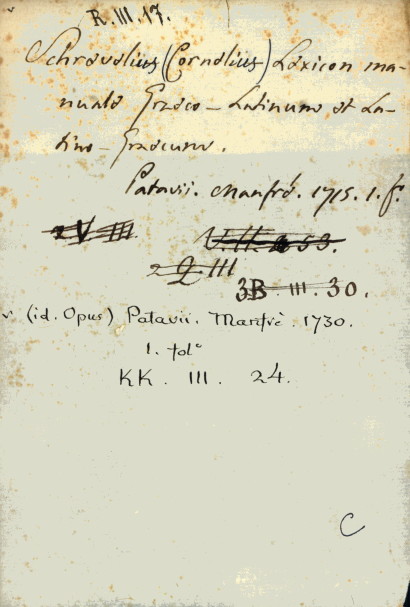 R. III. 17.
Schrevelius (Cornelius) Lexicon ma-
nuale Græco - Latinum et La-
tino - Græcum.
Patavii. Manfrè. 1715. 1. f.
2 V III
V. II. 53.
2 Q III
3B . III . 30.
v. (id. Opus) Patavii. Manfrè. 1730.
1. fol.º
KK . III . 24.
C